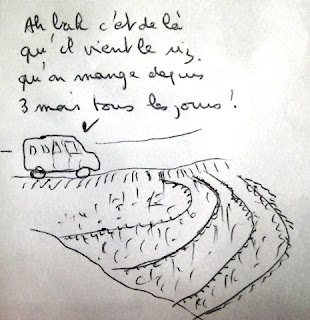 Ah bah c'est de là
qu'il vient le riz
qu'on mange depuis
3 mois tous les jours !